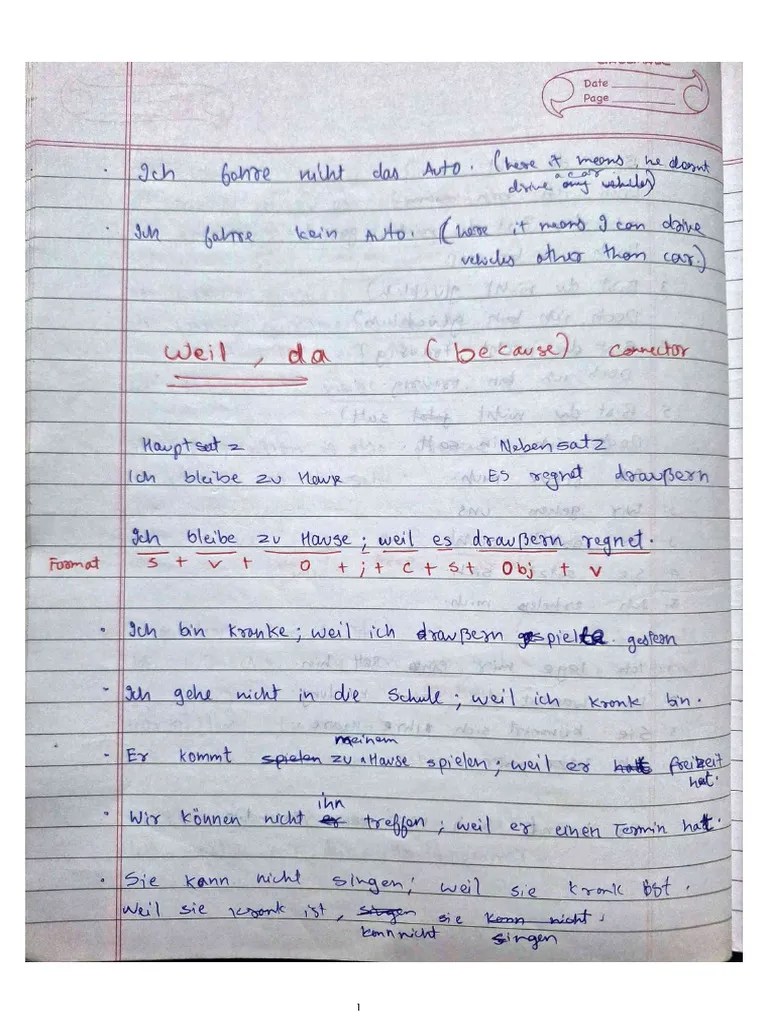 Date
Page
Ich fahre nicht das Auto. (here it means, he doesnt
a car
drive any vehicles)
Ich fahre kein Auto. (here it means I can drive
vehicles other then car.)
Weil, da (because) connector
Hauptsatz Nebensatz
Ich bleibe zu Hause Es regnet draußern
Ich bleibe zu Hause; weil es draußern regnet.
Format S + V + O + ; + C + S + Obj + V
Ich bin kranke; weil ich draußern spielte. gestern
Ich gehe nicht in die Schule; weil ich kronk bin.
meinem
Er kommt spielen zu Hause spielen; weil er hat freizeit
hat.
ihn
Wir können nicht er treffen; weil er einen Termin hat.
Sie kann nicht singen; weil sie kronk ist.
Weil sie kronk ist, singen sie kann nicht.
kann nicht singen
1